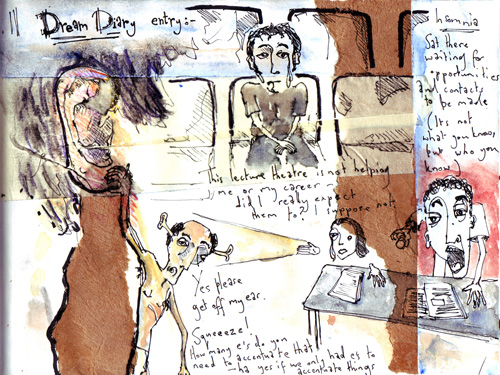 Dream Diary entry:-
Insomnia
Sat there
waiting for
opportunities
and contacts
to be made
(Its not
what you know
but who you
know)
This lecture theatre is not helping
me or my career -
did I really expect
them to? I suppose not.
Yes please
get off my ear.
Squeeeze!
How many e's do you
need to accentuate that
-ha yes if we only had e's to
accentuate things